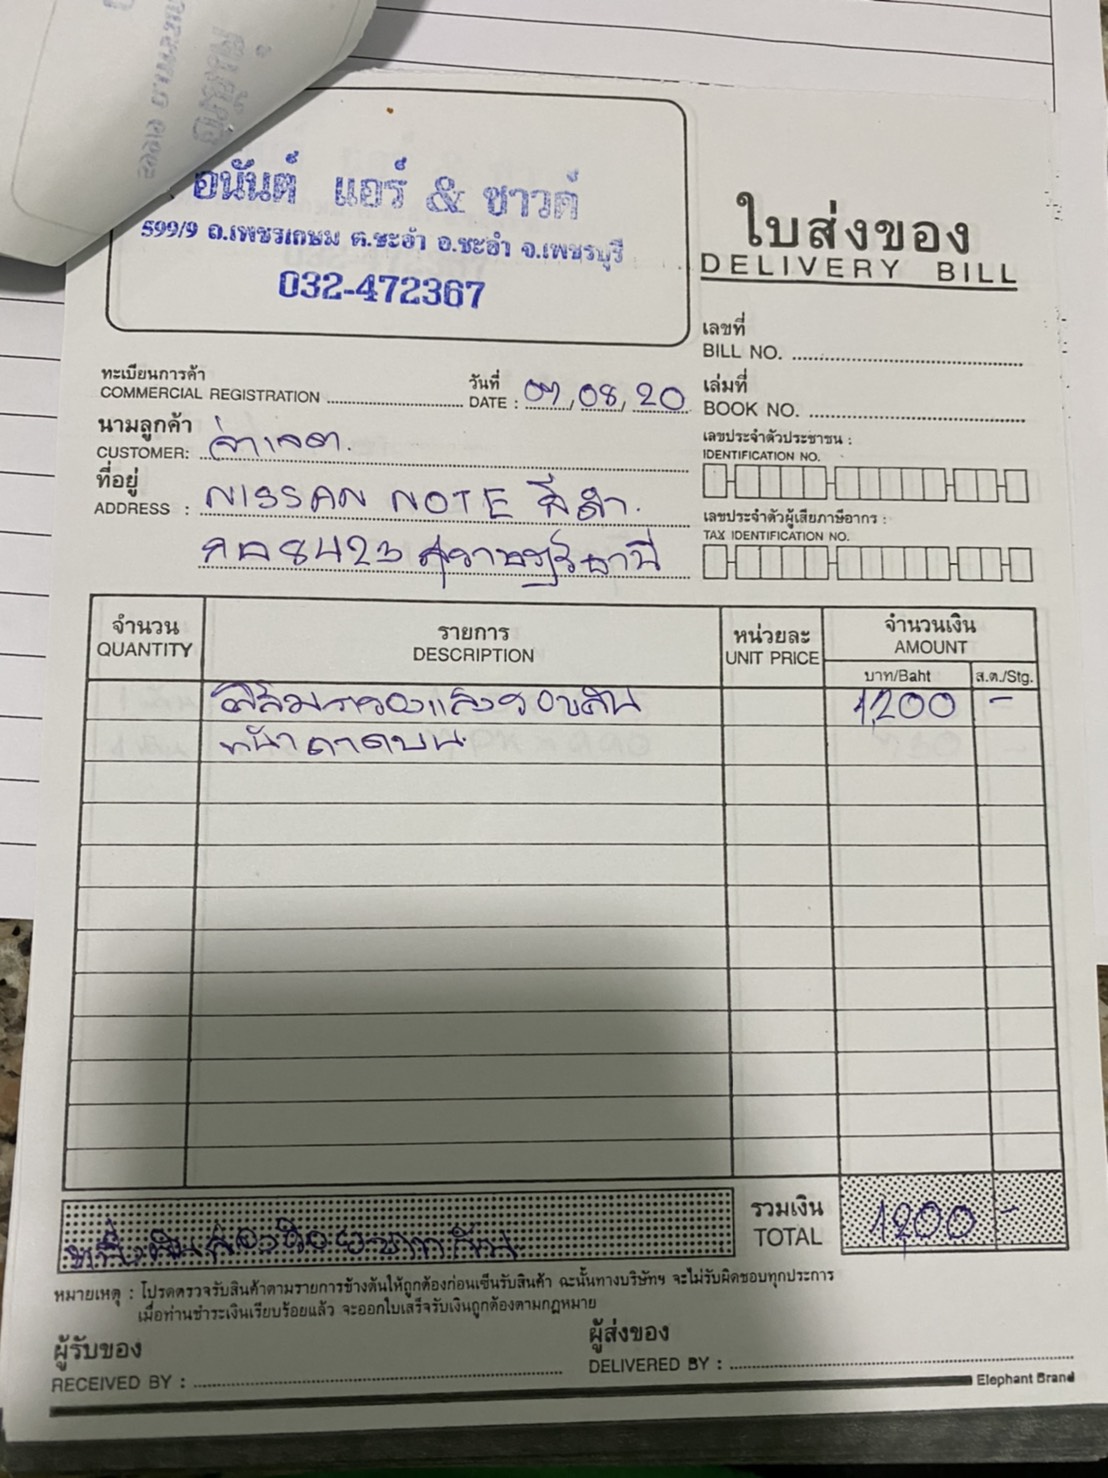 อนันต์ แอร์ & ซาวด์
599/9 ถ.เพชรเกษม ต.ชะอำ อ.ชะอำ จ.เพชรบุรี
032-472367
ใบส่งของ
DELIVERY BILL
เลขที่
BILL NO.
ทะเบียนการค้า
COMMERCIAL REGISTRATION
วันที่
DATE : 07,08,20
เล่มที่
BOOK NO.
นามลูกค้า
CUSTOMER:
เลขประจำตัวประชาชน :
IDENTIFICATION NO.
ที่อยู่
ADDRESS : NISSAN NOTE สีดำ.
8423 สุราษฎร์ธานี
เลขประจำตัวผู้เสียภาษีอากร :
TAX IDENTIFICATION NO.
จำนวน
QUANTITY
รายการ
DESCRIPTION
หน่วยละ
UNIT PRICE
จำนวนเงิน
AMOUNT
บาท/Baht
ส.ต./Stg.
ฟิล์มกรองแสงรอบคัน 1,200 -
หน้าคาดบน
หนึ่งพันสองร้อยบาทถ้วน
รวมเงิน
TOTAL
1,200 -
หมายเหตุ : โปรดตรวจรับสินค้าตามรายการข้างต้นให้ถูกต้องก่อนเซ็นรับสินค้า ฉะนั้นทางบริษัทฯ จะไม่รับผิดชอบทุกประการ
เมื่อท่านชำระเงินเรียบร้อยแล้ว จะออกใบเสร็จรับเงินถูกต้องตามกฎหมาย
ผู้รับของ
RECEIVED BY :
ผู้ส่งของ
DELIVERED BY :
Elephant Brand